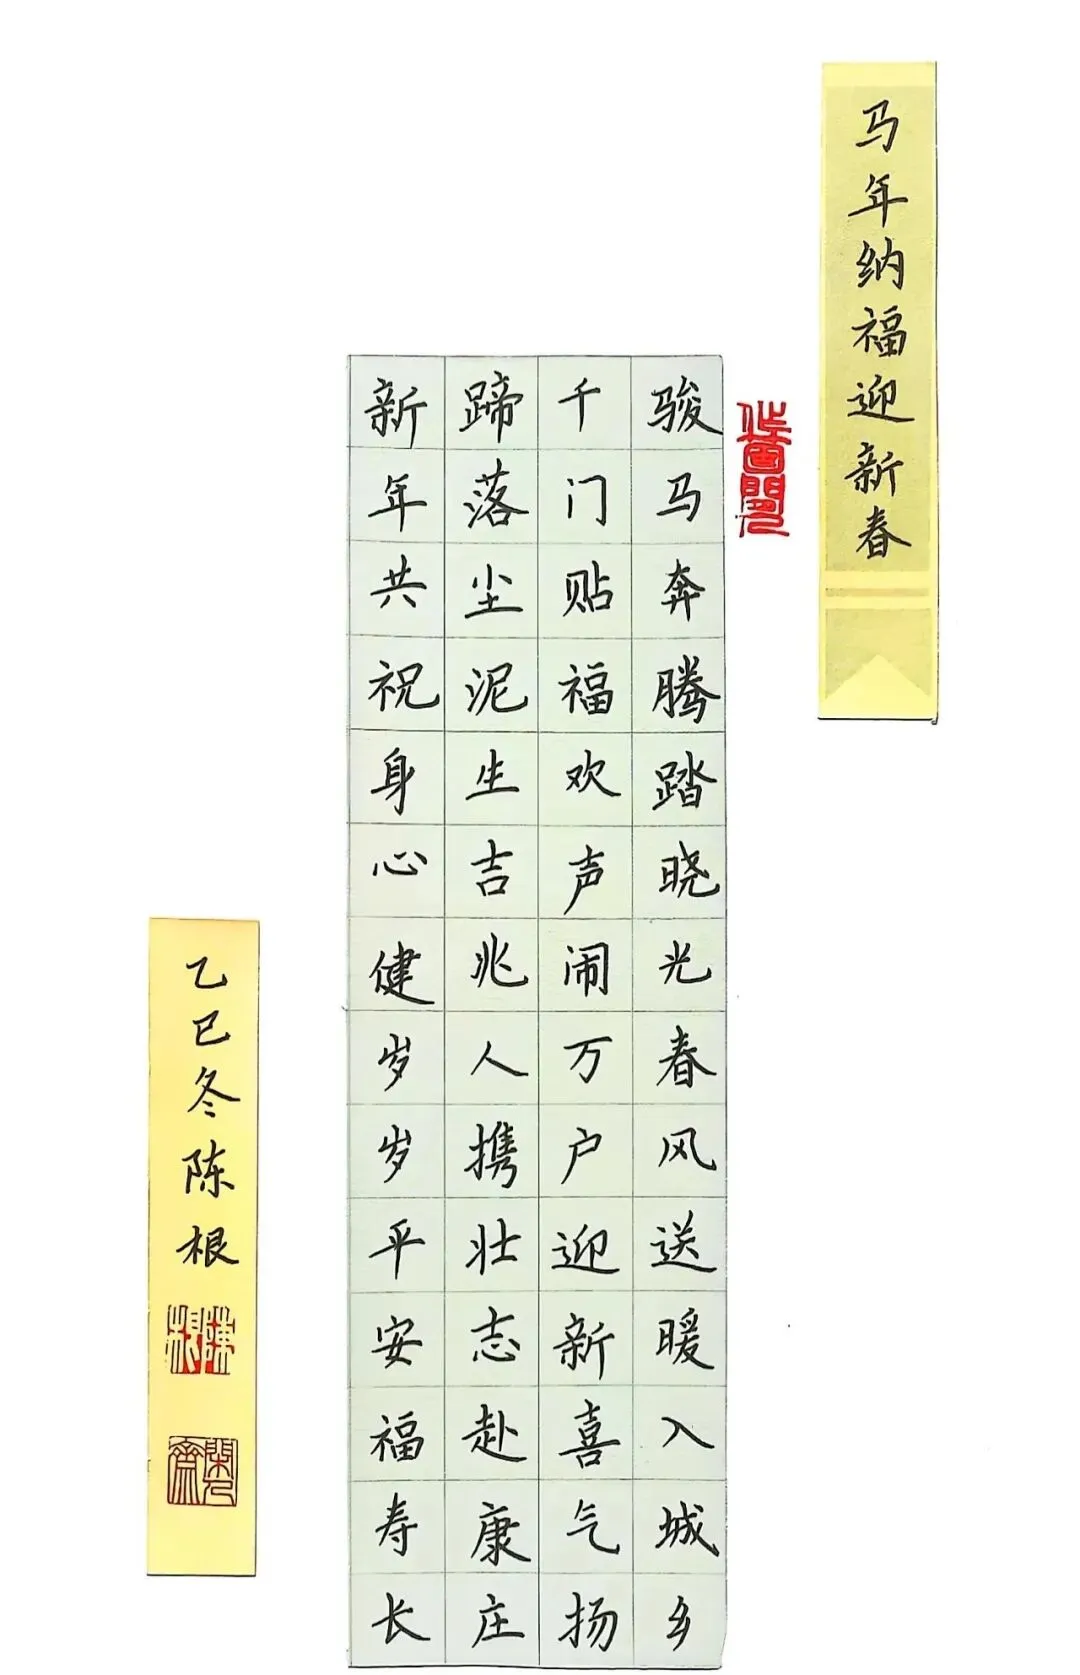 马年纳福迎新春
骏马奔腾踏晓光春风送暖入城乡
千门贴福欢声闹万户迎新喜气扬
蹄落尘泥生吉兆人携壮志赴康庄
新年共祝身心健岁岁平安福寿长
乙巳冬陈根
陳根